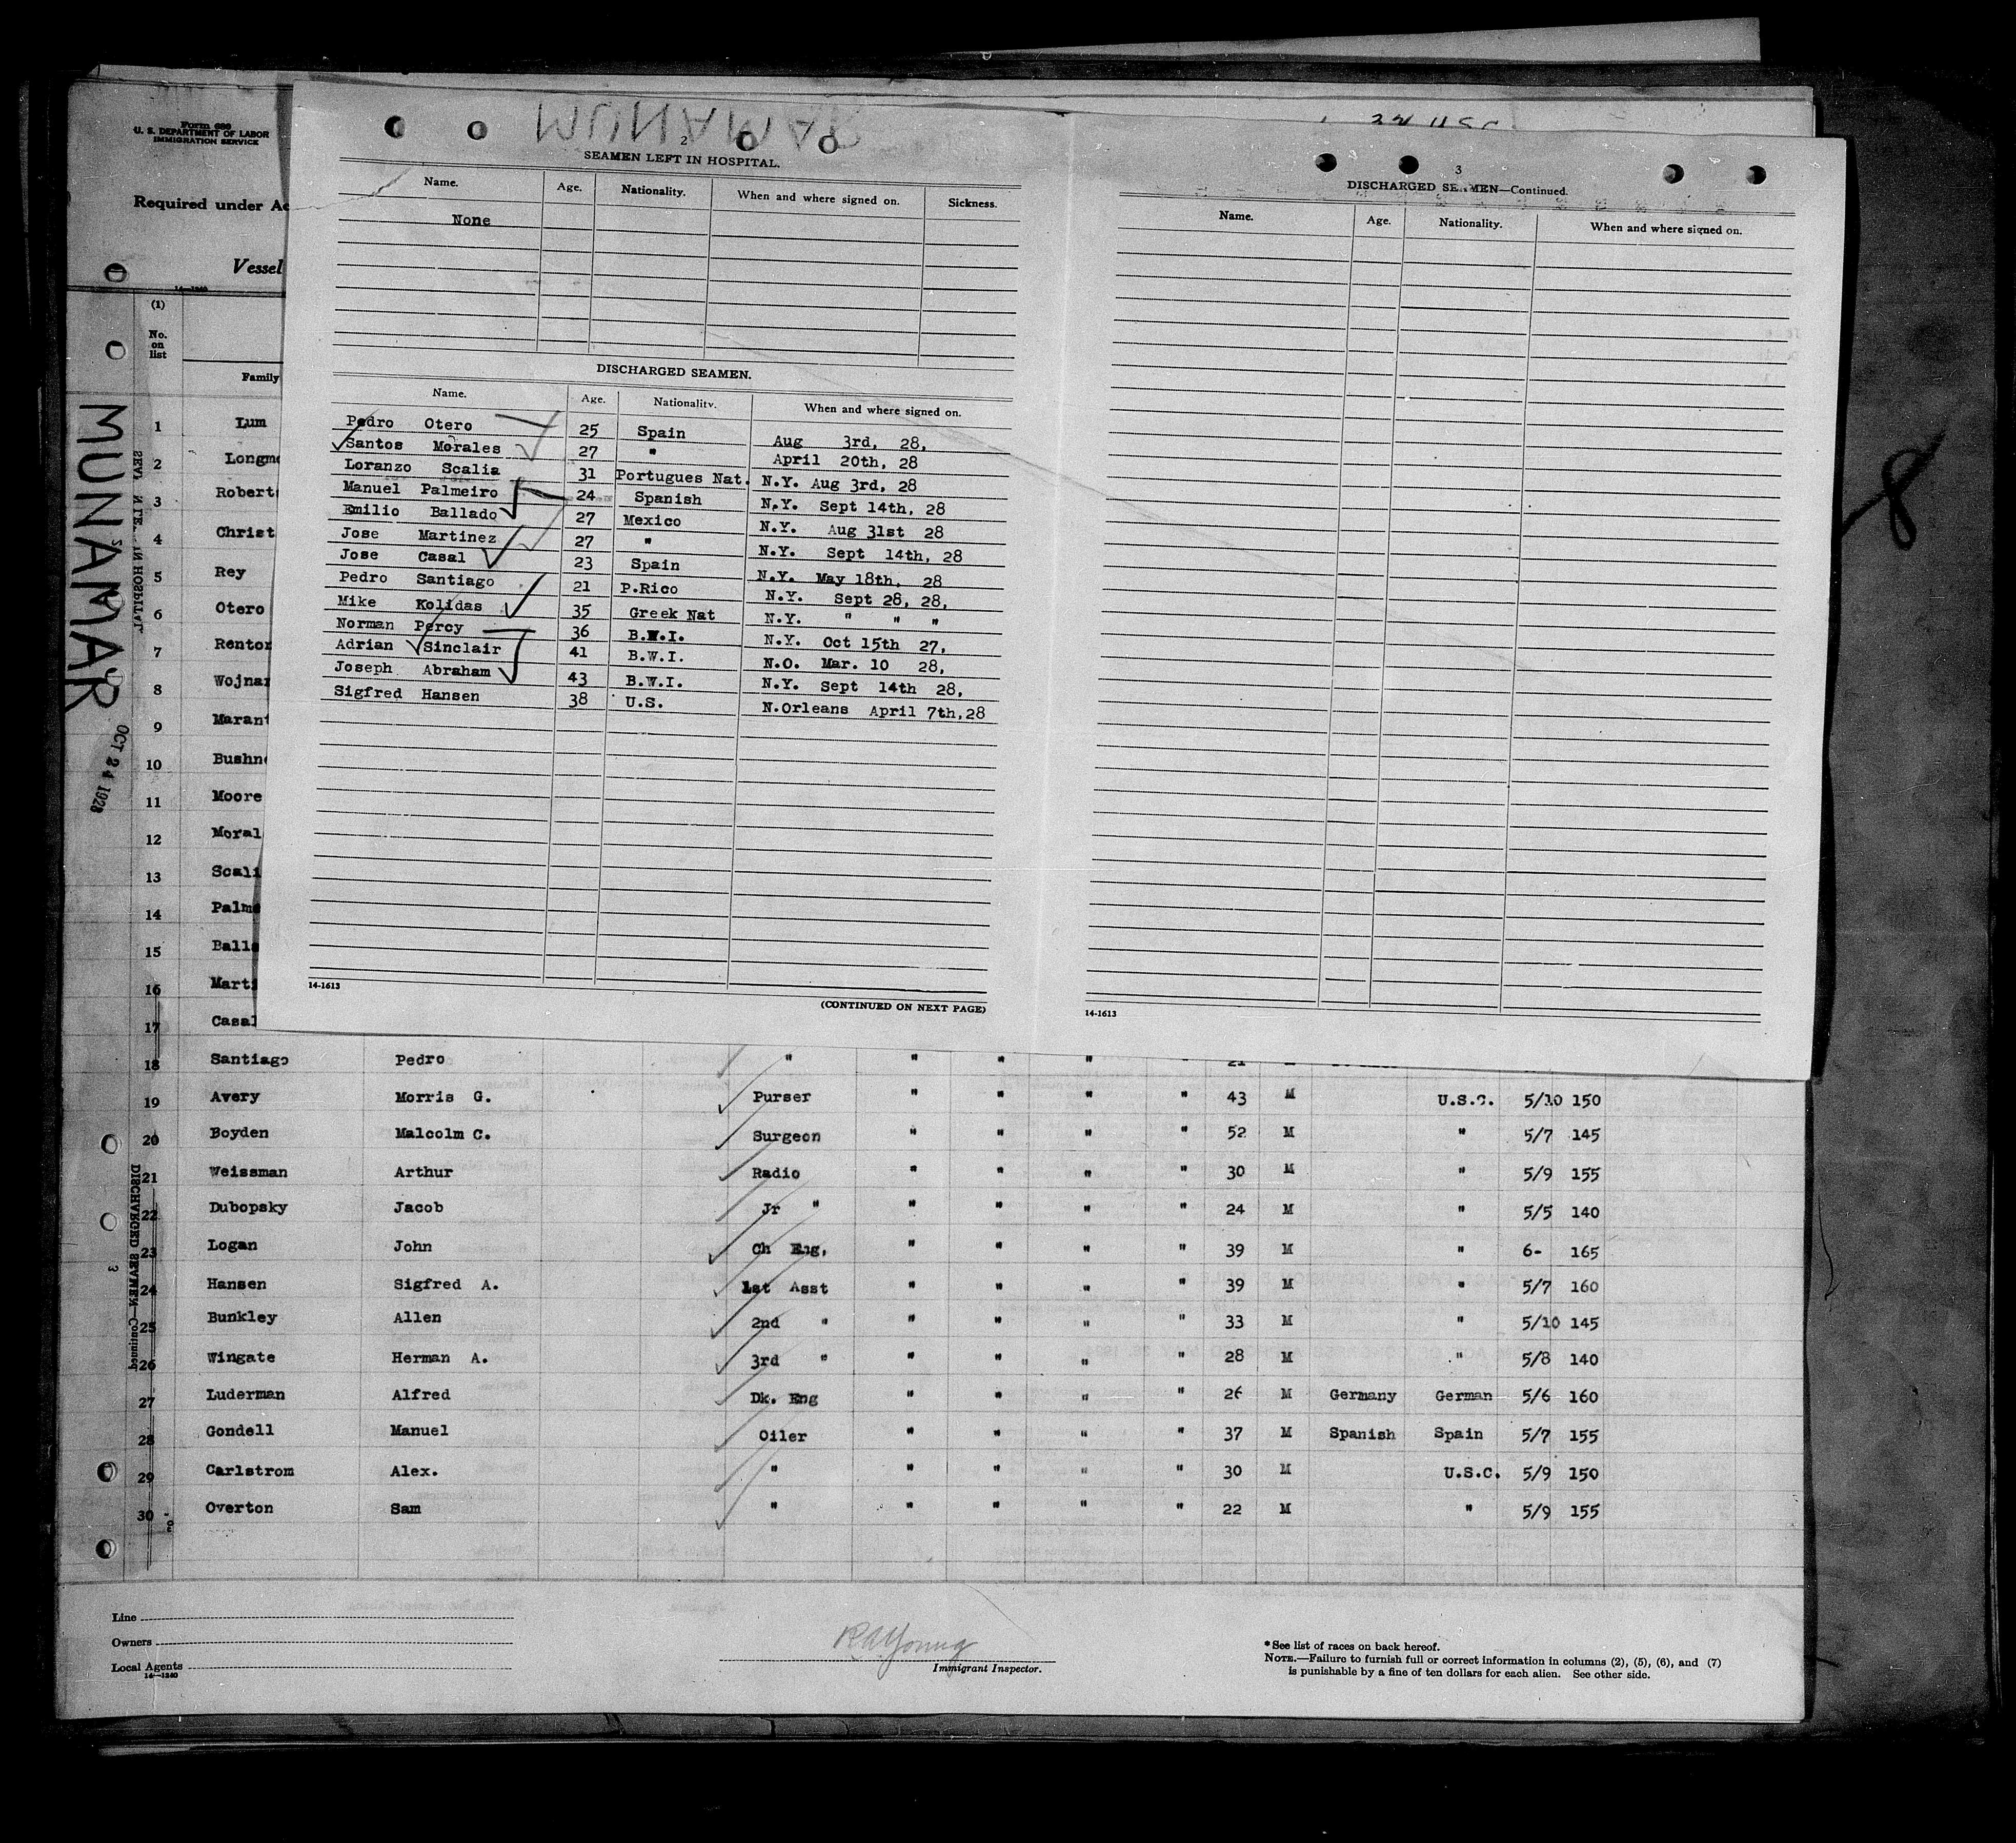 MUNAMAR
2
SEAMEN LEFT IN HOSPITAL.
Name. Age. Nationality. When and where signed on. Sickness.
None
DISCHARGED SEAMEN.
Name. Age. Nationality. When and where signed on.
Pedro Otero 25 Spain Aug 3rd, 28,
Santos Morales 27 " April 20th, 28
Loranzo Scalia 31 Portugues Nat. N.Y. Aug 3rd, 28
Manuel Palmeiro 24 Spanish N.Y. Sept 14th, 28
Emilio Ballado 27 Mexico N.Y. Aug 31st 28
Jose Martinez 27 " N.Y. Sept 14th, 28
Jose Casal 23 Spain N.Y. May 18th, 28
Pedro Santiago 21 P.Rico N.Y. Sept 28, 28,
Mike Kolidas 35 Greek Nat N.Y. " " "
Norman Percy 36 B.W.I. N.Y. Oct 15th 27,
Adrian Sinclair 41 B.W.I. N.O. Mar. 10 28,
Joseph Abraham 43 B.W.I. N.Y. Sept 14th 28,
Sigfred Hansen 38 U.S. N.Orleans April 7th,28
14-1613
(CONTINUED ON NEXT PAGE)
3
DISCHARGED SEAMEN—Continued.
Name. Age. Nationality. When and where signed on.
14-1613
Form 680
U. S. DEPARTMENT OF LABOR
IMMIGRATION SERVICE
Required under Ac
Vessel
14-1240
(1)
No. on list
Family
MUNAMAR
OCT 24 1928
1 Lum
2 Longm
3 Robert
4 Christ
5 Rey
6 Otero
7 Rento
8 Wojna
9 Maran
10 Bushn
11 Moore
12 Moral
13 Scali
14 Palm
15 Ball
16 Marti
17 Casal
18 Santiago Pedro " " " " " 21
19 Avery Morris G. Purser " " " " 43 M U.S.C. 5/10 150
20 Boyden Malcolm C. Surgeon " " " " 52 M " 5/7 145
21 Weissman Arthur Radio " " " " 30 M " 5/9 155
22 Dubopsky Jacob Jr " " " " " 24 M " 5/5 140
23 Logan John Ch Eng, " " " " 39 M " 6- 165
24 Hansen Sigfred A. 1st Asst " " " " 39 M " 5/7 160
25 Bunkley Allen 2nd " " " " " 33 M " 5/10 145
26 Wingate Herman A. 3rd " " " " " 28 M " 5/8 140
27 Luderman Alfred Dk. Eng " " " " 26 M Germany German 5/6 160
28 Gondell Manuel Oiler " " " " 37 M Spanish Spain 5/7 155
29 Carlstrom Alex. " " " " " 30 M U.S.C. 5/9 150
30 Overton Sam " " " " " 22 M " 5/9 155
DISCHARGED SEAMEN—Continued
3
Line
Owners
Local Agents
14-1240
R A Young
Immigrant Inspector.
*See list of races on back hereof.
NOTE.—Failure to furnish full or correct information in columns (2), (5), (6), and (7)
is punishable by a fine of ten dollars for each alien. See other side.